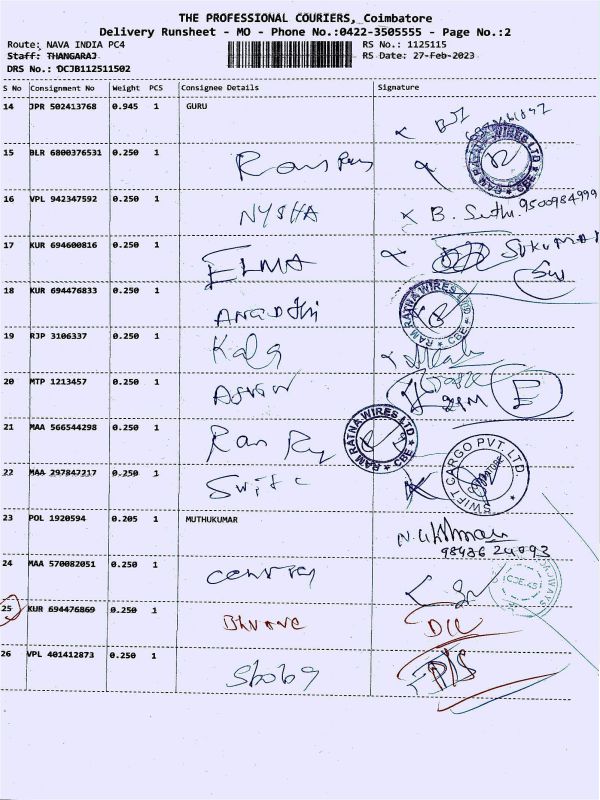 THE PROFESSIONAL COURIERS, Coimbatore
Delivery Runsheet - MO - Phone No.:0422-3505555 - Page No.:2
Route: NAVA INDIA PC4
RS No.: 1125115
Staff: THANGARAJ
RS Date: 27-Feb-2023
DRS No.: DCJB112511502
S No Consignment No Weight PCS Consignee Details Signature
14 JPR 502413768 0.945 1 GURU
15 BLR 6800376531 0.250 1 Ram Ray
RAM RATNA WIRES LTD CBE
16 VPL 942347592 0.250 1 NYSHA B. Sethi. 9500984999
17 KUR 694600816 0.250 1 ELMA SUKUMAR
18 KUR 694476833 0.250 1
RAM RATNA WIRES LTD CBE
19 RJP 3106337 0.250 1 Kala
20 MTP 1213457 0.250 1 E
21 MAA 566544298 0.250 1 Ram Ry
RAM RATNA WIRES LTD CBE
22 MAA 297847217 0.250 1 Swift c
SWIFT CARGO PVT. LTD COIMBATORE
23 POL 1920594 0.205 1 MUTHUKUMAR
98436 24093
24 MAA 570082051 0.250 1
25 KUR 694476869 0.250 1
26 VPL 401412873 0.250 1 Shoba